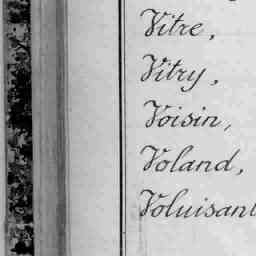 Vitre,
Vitry,
Voisin,
Voland,
Voluisant